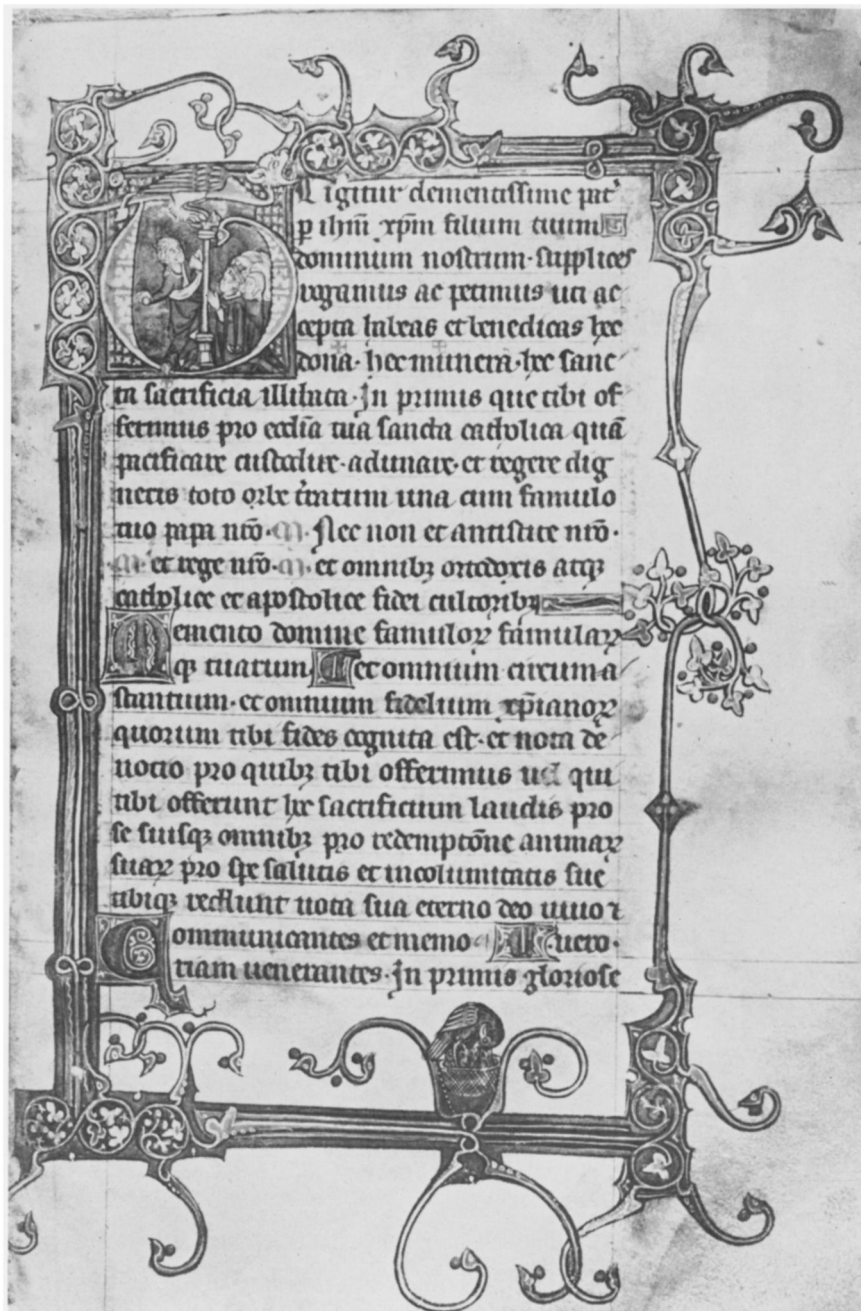 T E igitur clementissime pat'
p ihm xpm filium tuum
dominum nostrum · supplices
rogamus ac petimus uti ac
cepta habeas et benedicas hec
dona · hec munera · hec sanc
ta sacrificia illibata · In primis que tibi of
ferimus pro ecclia tua sancta catholica quā
pacificare custodire · adunare · et regere dig
neris toto orbe trarum una cum famulo
tuo papa nrō · N · Nec non et antistite nrō ·
N · et rege nrō · N · et omnibꝫ ortodoxis atqꝫ
catholice et apostolice fidei cultoribꝫ
Memento domine famuloꝝ famulaꝝ
qꝫ tuarum · et omnium circuma
stantium · et omnium fidelium xpianoꝝ
quorum tibi fides cognita est · et nota de
uotio pro quibꝫ tibi offerimus uel qui
tibi offerunt hoc sacrificium laudis pro
se suisqꝫ omnibꝫ pro redemptōne animaꝝ
suaꝝ pro spe salutis et incolumitatis sue
tibiqꝫ reddunt uota sua eterno deo uiuo ⁊
Communicantes et memo uero ·
riam uenerantes · In primis gloriose